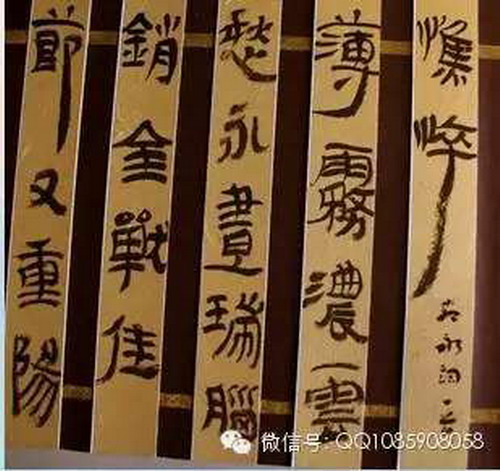 憔悴
薄霧濃雲
愁永晝瑞腦
銷金獸佳
節又重陽
微信号: QQ1085908058